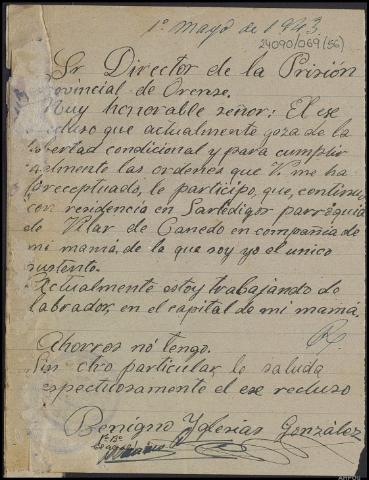 1º Mayo de 1943.
24090/069(56)
Sr. Director de la Prisión
provincial de Orense.
Muy honorable señor: El exe
recluso que actualmente goza de la
libertad condicional y para cumplir
las ordenes que V. me ha
preceptuado, le participo, que, continuo
con residencia en Sartedigos parroquia
de Vilar de Canedo en compañia de
mi mamá, de la que soy yo el unico
sustento.
Actualmente estoy trabajando de
labrador, en el capital de mi mamá.
Ahorros nó tengo.
Sin otro particular, le saluda
respectuosamente el exe recluso
Benigno Yglesias González